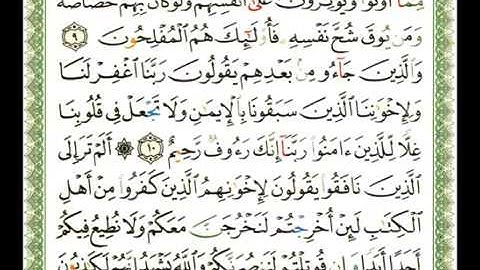 مِّمَّآ أُوتُوا۟ وَيُؤْثِرُونَ عَلَىٰٓ أَنفُسِهِمْ وَلَوْ كَانَ بِهِمْ خَصَاصَةٌ
وَمَن يُوقَ شُحَّ نَفْسِهِۦ فَأُو۟لَٰٓئِكَ هُمُ ٱلْمُفْلِحُونَ ٩
وَٱلَّذِينَ جَآءُو مِنۢ بَعْدِهِمْ يَقُولُونَ رَبَّنَا ٱغْفِرْ لَنَا
وَلِإِخْوَٰنِنَا ٱلَّذِينَ سَبَقُونَا بِٱلْإِيمَٰنِ وَلَا تَجْعَلْ فِى قُلُوبِنَا
غِلًّا لِّلَّذِينَ ءَامَنُوا۟ رَبَّنَآ إِنَّكَ رَءُوفٌ رَّحِيمٌ ١٠ ۞ أَلَمْ تَرَ إِلَى
ٱلَّذِينَ نَافَقُوا۟ يَقُولُونَ لِإِخْوَٰنِهِمُ ٱلَّذِينَ كَفَرُوا۟ مِنْ أَهْلِ
ٱلْكِتَٰبِ لَئِنْ أُخْرِجْتُمْ لَنَخْرُجَنَّ مَعَكُمْ وَلَا نُطِيعُ فِيكُمْ
أَحَدًا أَبَدًا وَإِن قُوتِلْتُمْ لَنَنصُرَنَّكُمْ وَٱللَّهُ يَشْهَدُ إِنَّهُمْ لَكَٰذِبُونَ